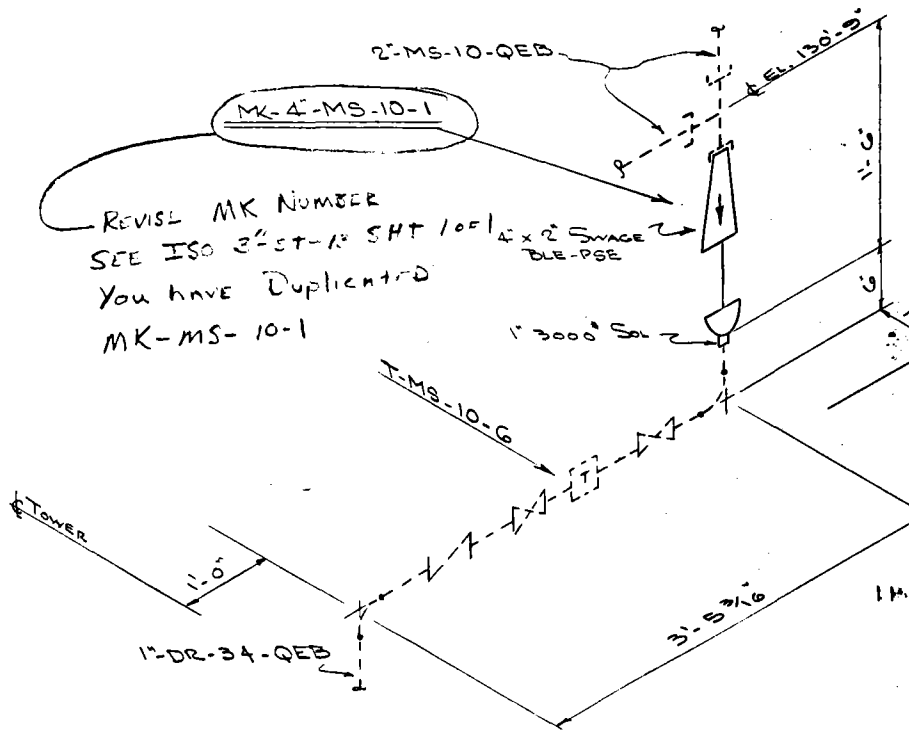 2"-MS-10-QEB
¢ EL. 130'-9"
MK-4"-MS-10-1
1'-6"
REVISE MK NUMBER
SEE ISO SHT 1 OF 1
You have Duplicated
MK-MS-10-1
4" x 2" SWAGE
BLE-PSE
6"
1" 3000# SOL
T-MS-10-6
T
¢ TOWER
1'-0"
3'-5 3/16"
1"-DR-34-QEB